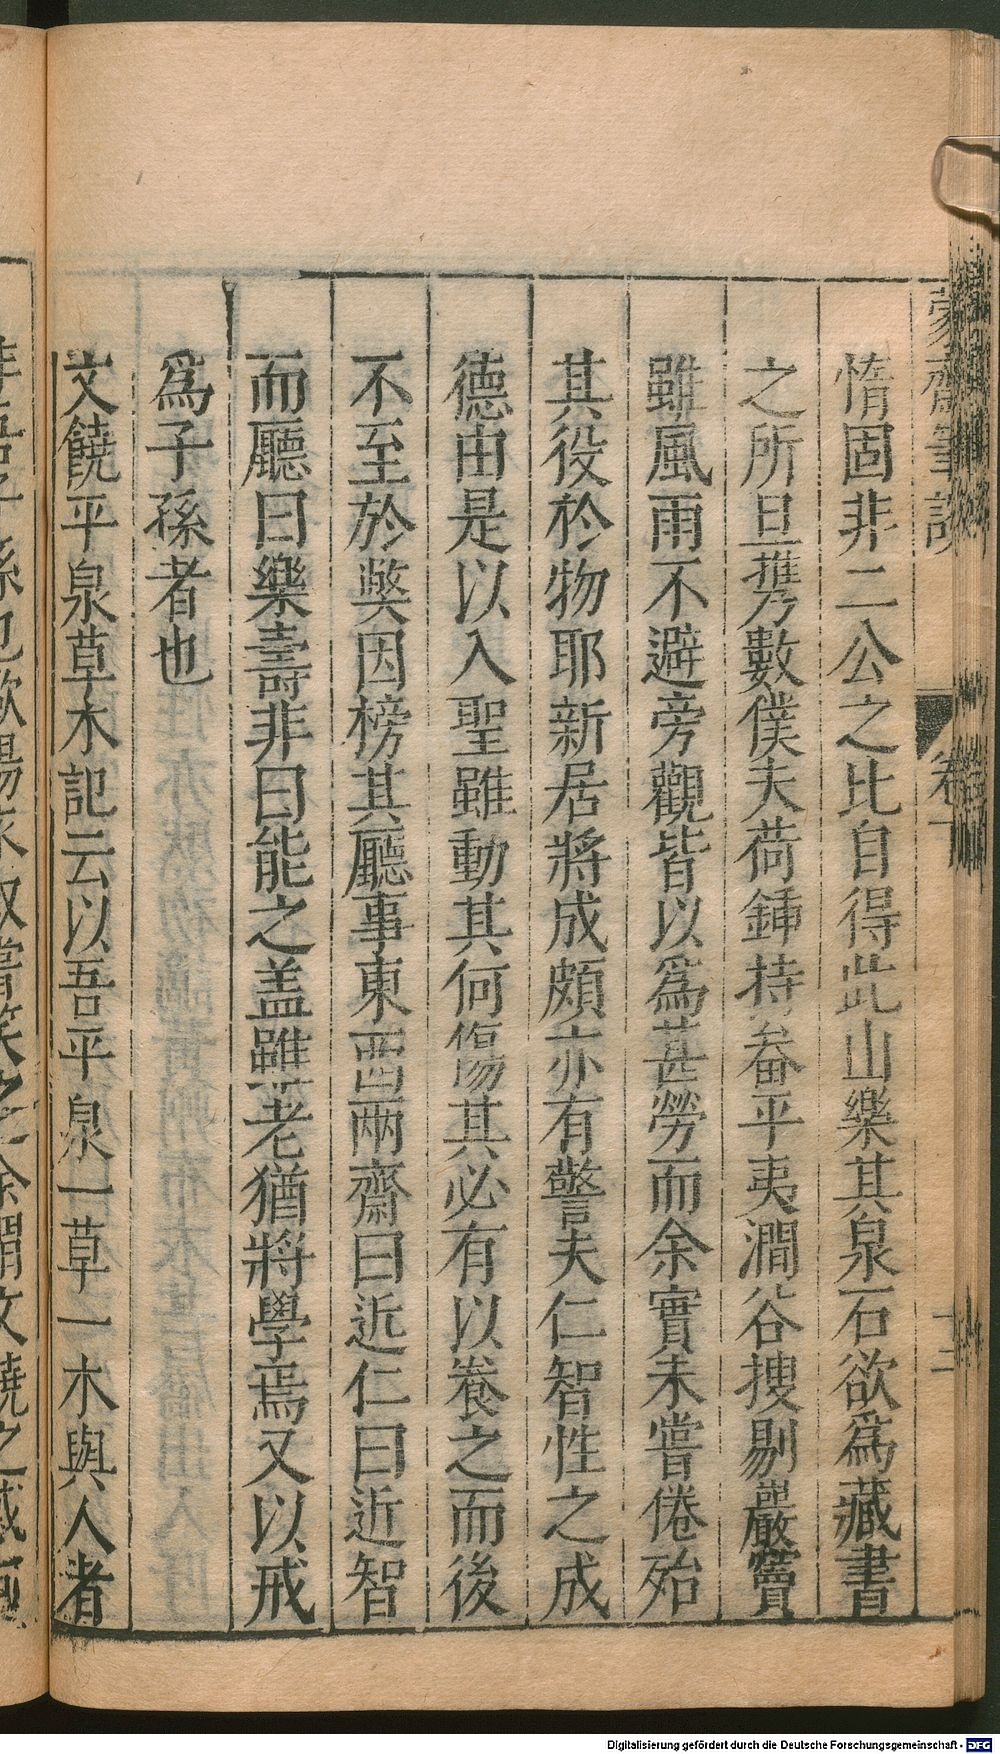 蒙齋筆談
卷下
十二
惰固非二公之比自得此山樂其泉石欲爲藏書
之所旦攜數僕夫荷鍤持畚平夷澗谷搜剔巖竇
雖風雨不避旁觀皆以爲甚勞而余實未嘗倦殆
其役於物耶新居將成頗亦有警夫仁智性之成
德由是以入聖雖動其何傷其必有以養之而後
不至於獘因榜其廳事東西兩齋曰近仁曰近智
而廳曰樂壽非曰能之盖雖老猶將學焉又以戒
爲子孫者也
文饒平泉草木記云以吾平泉一草一木與人者
非吾子孫也歐陽永叔嘗笑之余謂文饒之
Digitalisierung gefördert durch die Deutsche Forschungsgemeinschaft - DFG